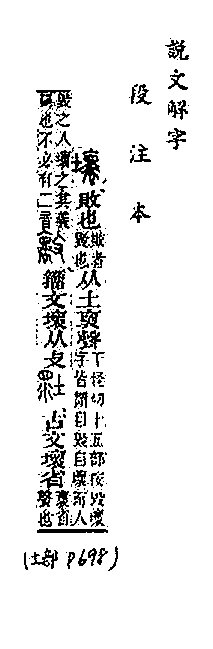 說文解字
段注本
壞 敗也敗者毀也从土褱聲下怪切十五部按毀壞字皆謂自毀自壞而人
毀之人壞之其義同也不必有二音籒文壞从攴 古文壞省褱省聲也
(土部 P698)